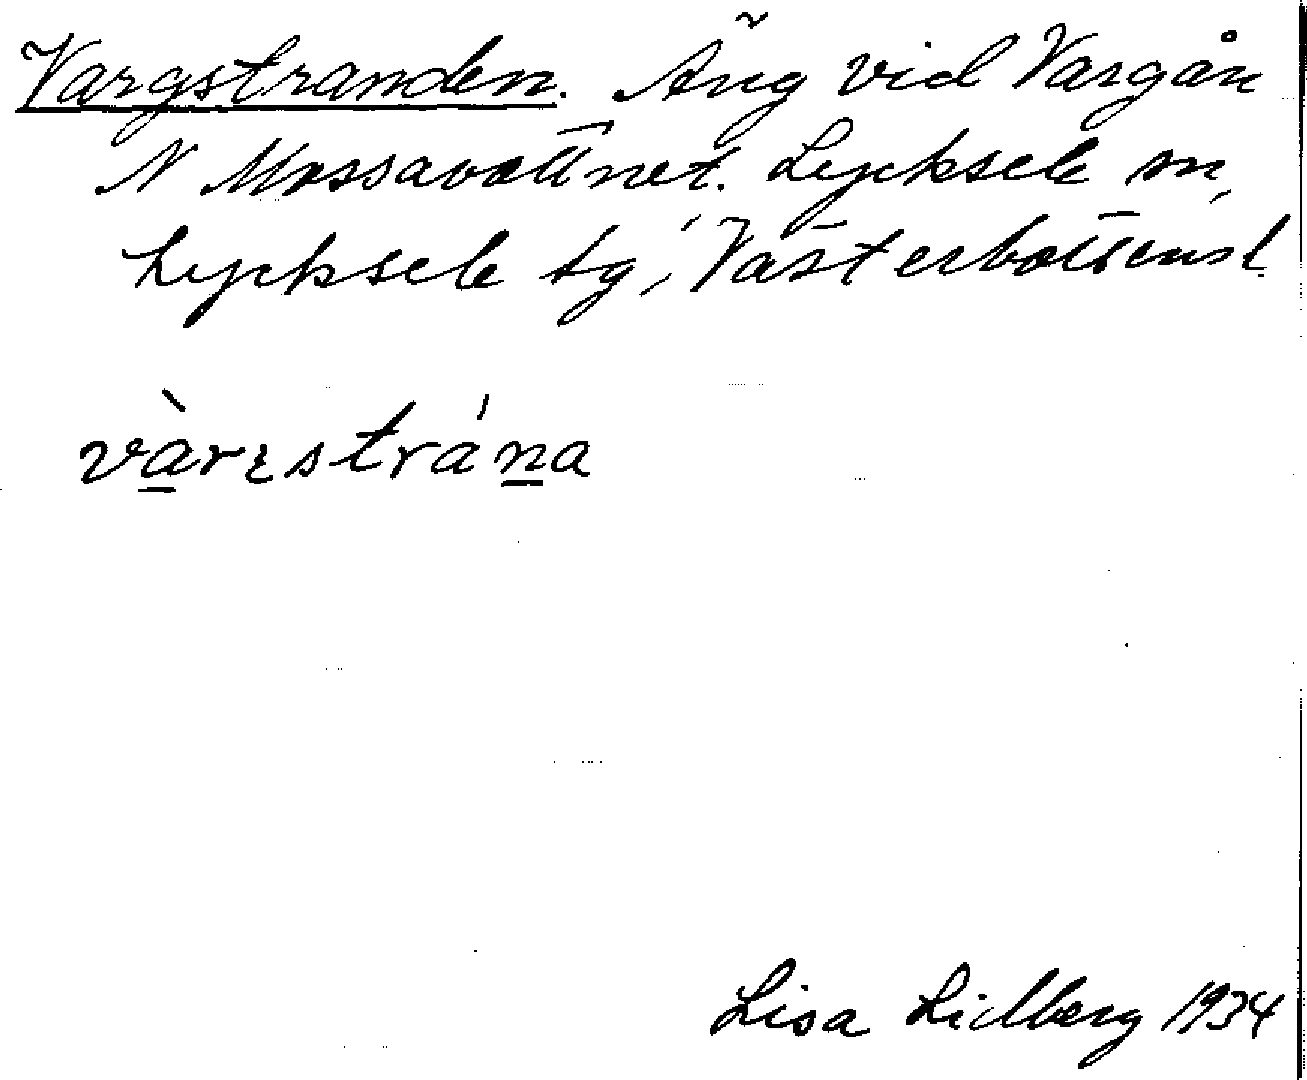 Vargstranden. Äng vid Vargån
N Mossavattnet. Lycksele sn,
Lycksele tg, Västerbottensl.
vàrɛstrána
Lisa Lidberg 1934